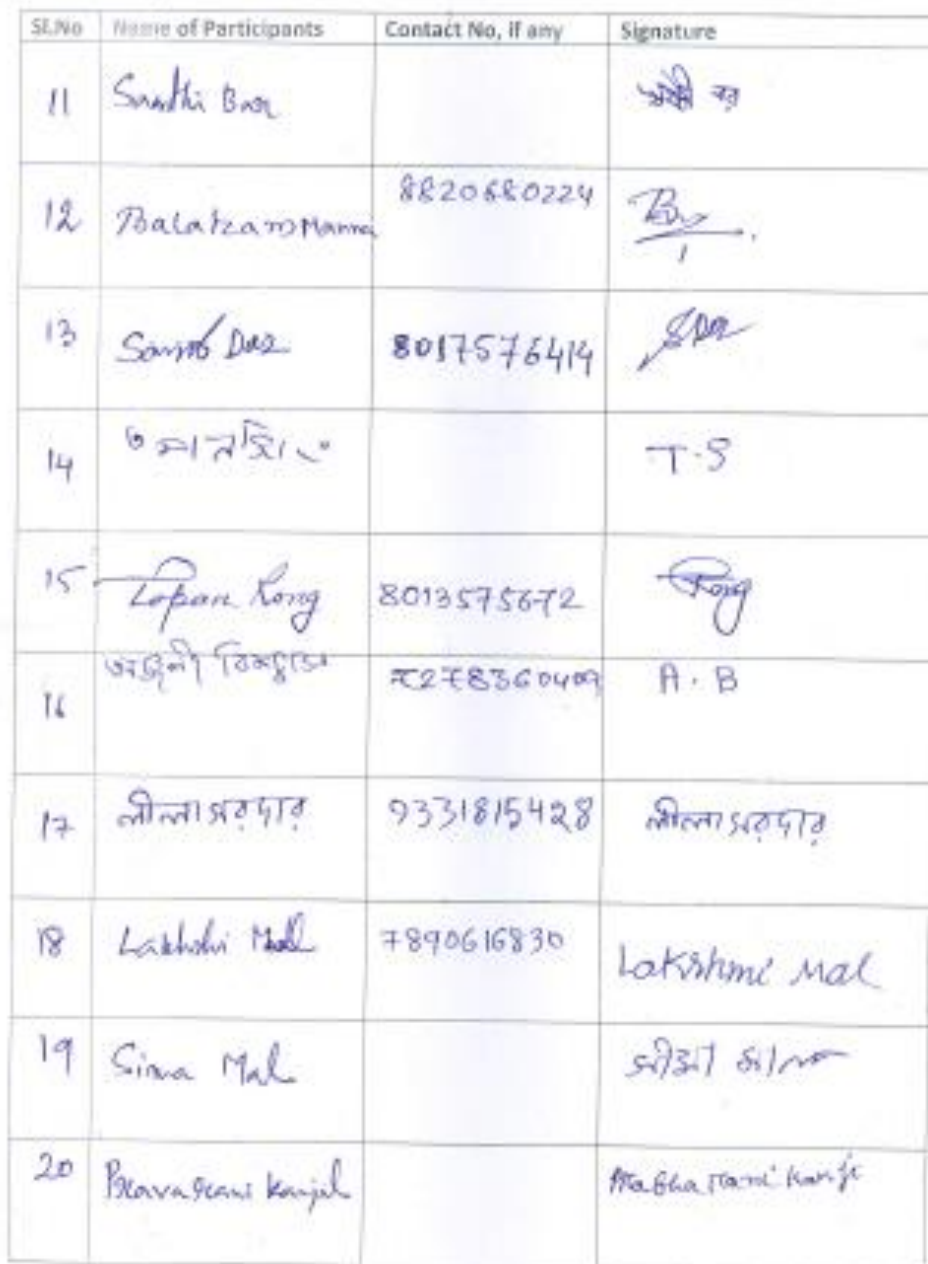 Sl.No Name of Participants Contact No, if any Signature
11 Sandhi Bar
12 Balaram Manna 8820680224
13 Das 8017576414 SDas
14 T.S
15 Tapan Kong 8013575672 Kong
16 7278360409 A.B
17 লীলা সরদার 9331815428 লীলা সরদার
18 Lakhshi Mal 7890616830 Lakshmi Mal
19 Sima Mal সীমা মাল
20 Pravarani Kanjil Prabha rani Kanji